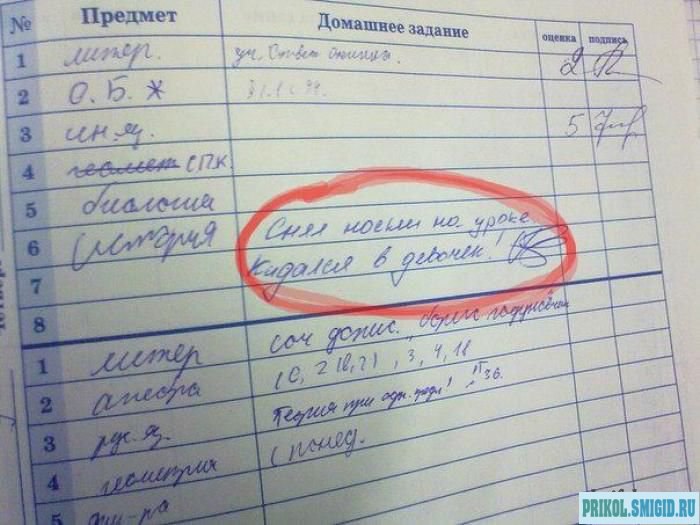 № Предмет Домашнее задание оценка подпись
1 литер. уч. 2
2 О.Б.Ж
3 ин.яз. 5
4 геомет СПК.
5 биология
6 история Снял носки на уроке.
7 Кидался в девочек!
8
1 литер соч допис. "борис годунов"
2 алгебра 3, 4, 18
3 рус. яз. Теория при
4 геометрия с понед.
5 физ-ра
Четверг
PRIKOL.SMIGID.RU